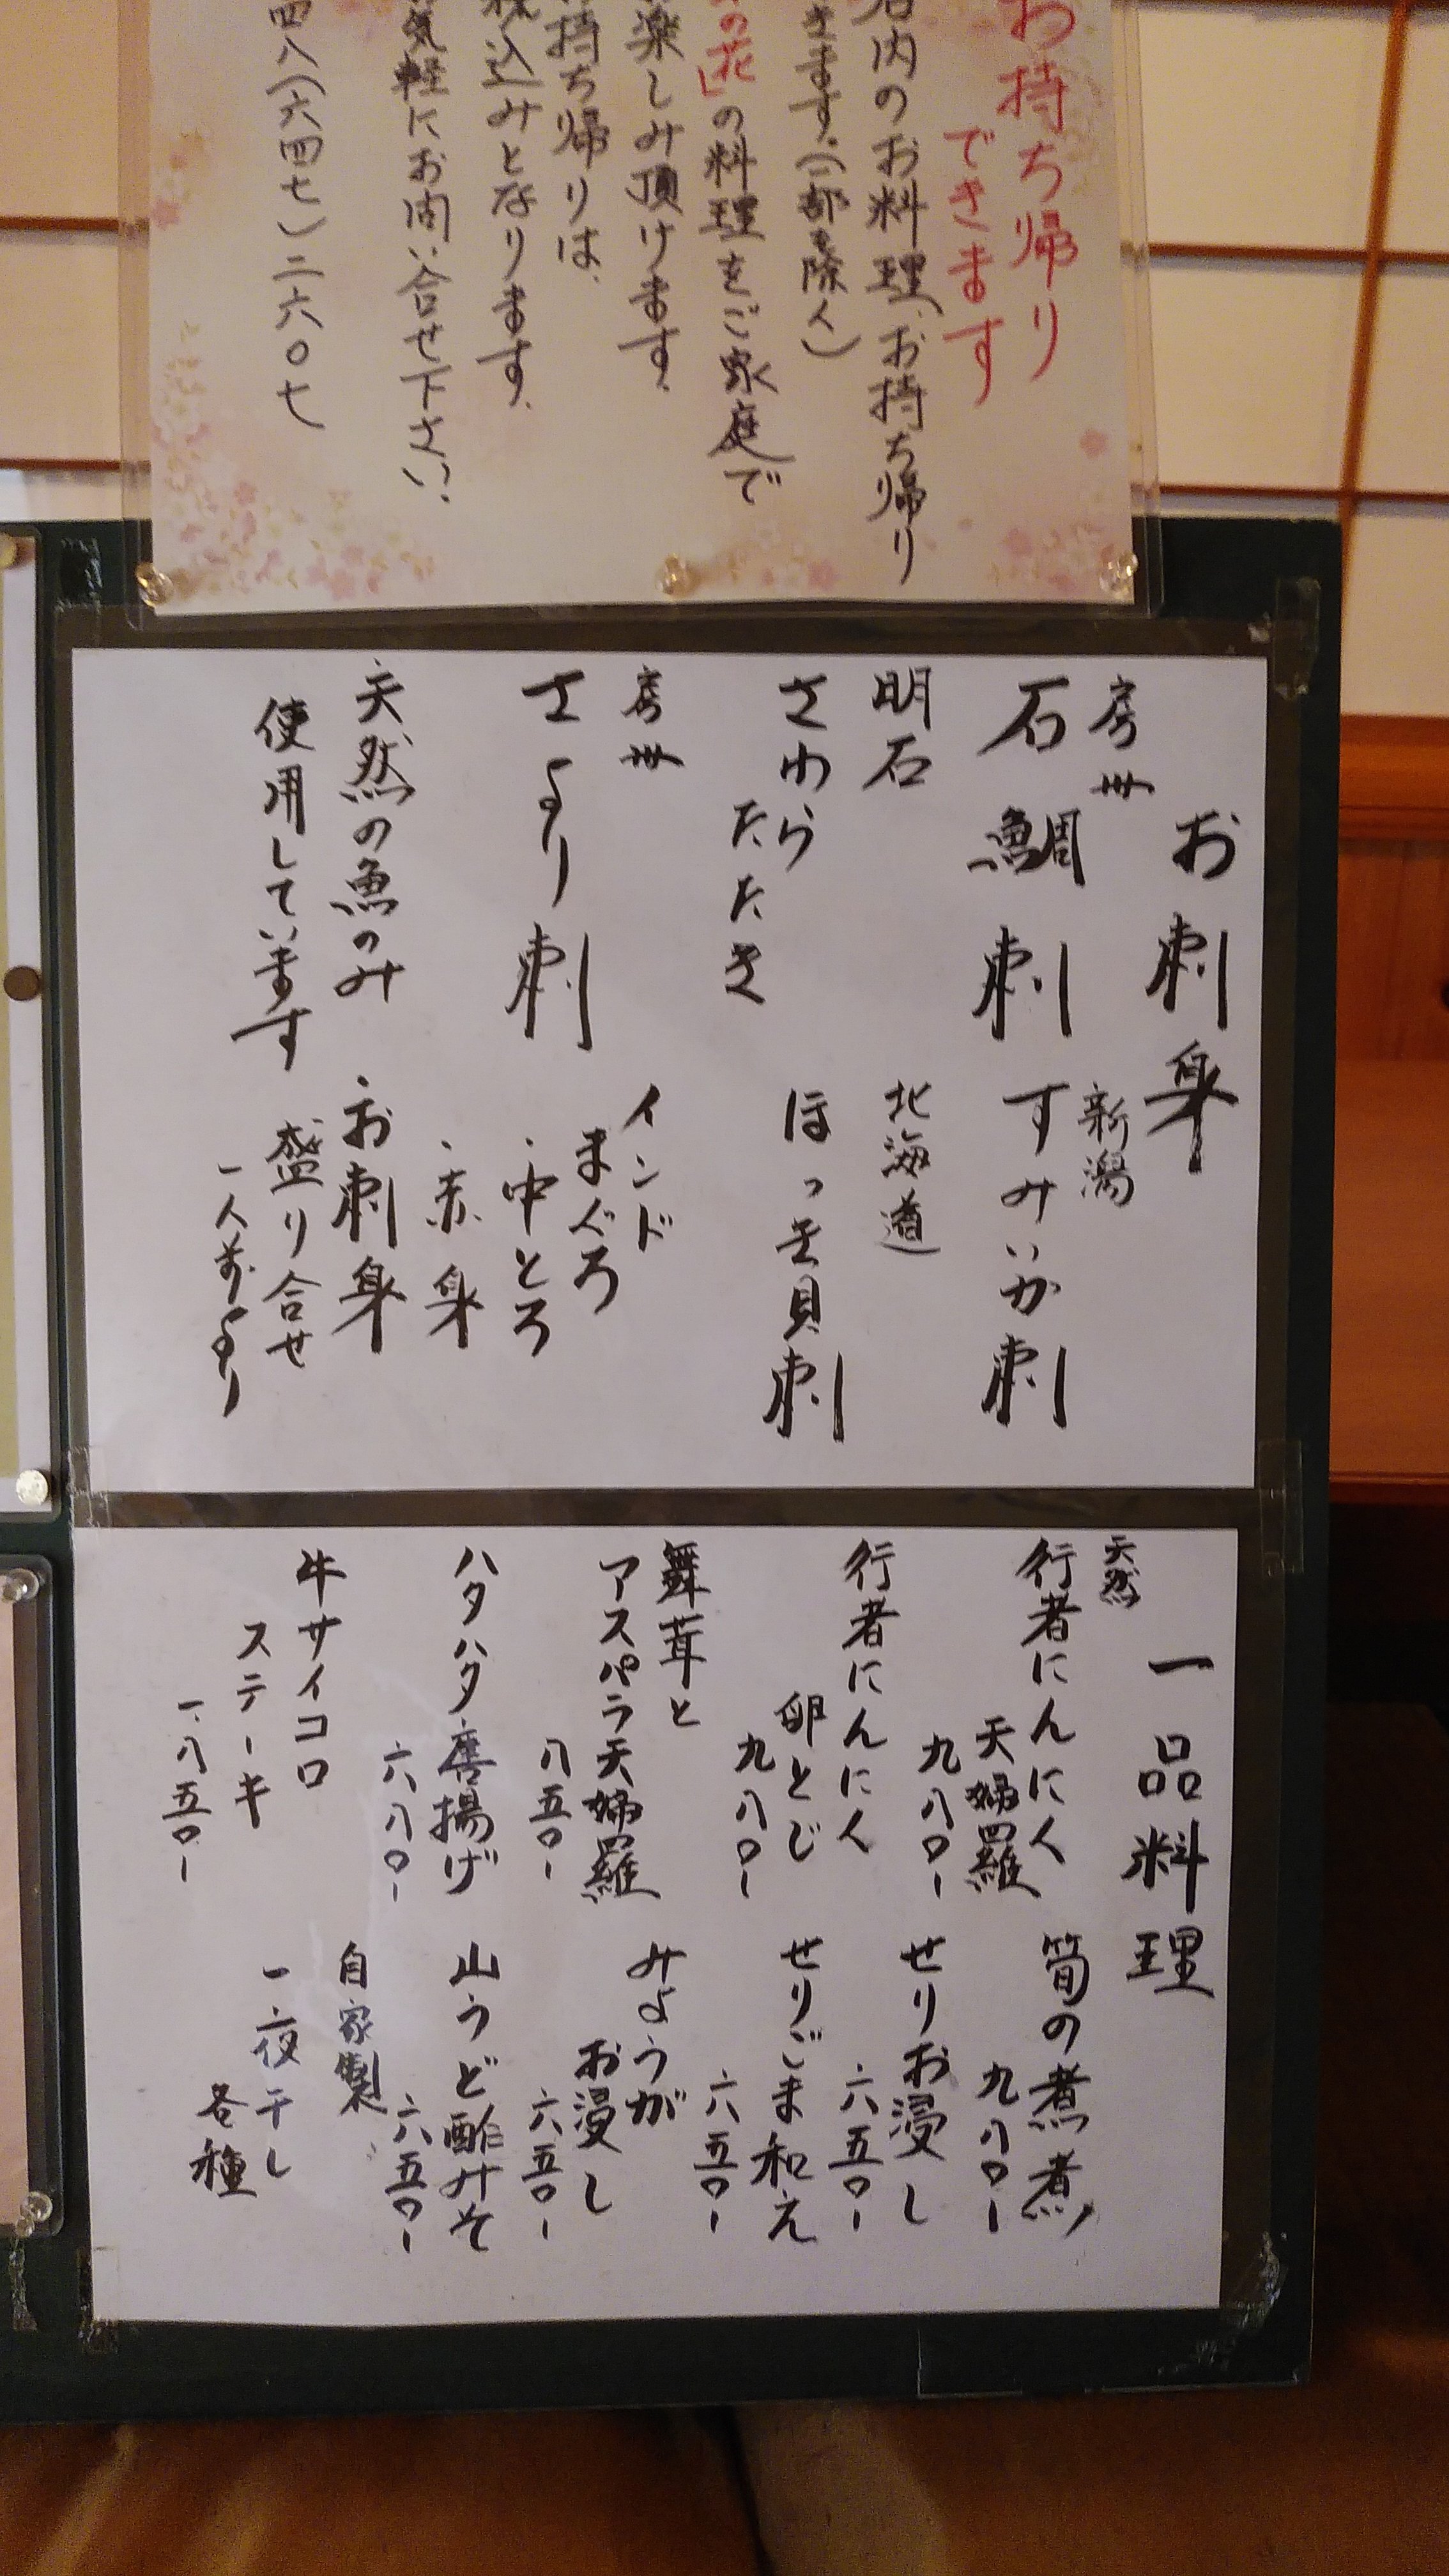 お持ち帰り
できます
店内のお料理、お持ち帰り
きます。(一部を除く)
の花」の料理をご家庭で
楽しみ頂けます。
持ち帰りは、
税込みとなります。
気軽にお問い合せ下さい。
四八(六四七)二六〇七
お刺身
房州
石鯛刺
新潟
すみいか刺
明石
さわら
たたき
北海道
ほっき貝刺
房州
さより刺
インド
まぐろ
・中とろ
・赤身
天然の魚のみ
使用しています
・お刺身
盛り合せ
一人前より
一品料理
天然
行者にんにく
天婦羅
九八〇-
筍の煮煮
九八〇-
行者にんにく
卵とじ
九八〇-
せりお浸し
六五〇-
せりごま和え
六五〇-
舞茸と
アスパラ天婦羅
八五〇-
みょうが
お浸し
六五〇-
ハタハタ唐揚げ
六八〇-
山うど酢みそ
六五〇-
牛サイコロ
ステーキ
一、八五〇-
自家製
一夜干し
各種